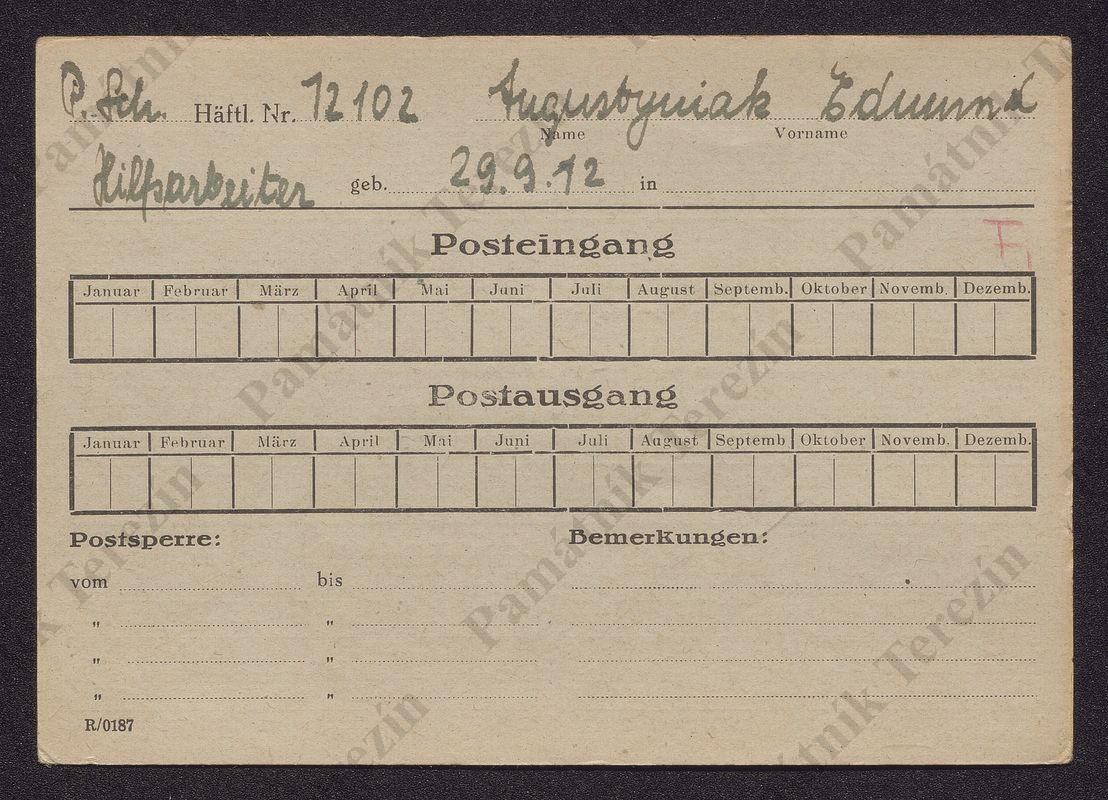 P. Sch. Häftl. Nr. 12102 Augustyniak Edmund
Name Vorname
Hilfsarbeiter geb. 29.9.12 in
Posteingang
F
Januar Februar März April Mai Juni Juli August Septemb. Oktober Novemb. Dezemb.
Postausgang
Januar Februar März April Mai Juni Juli August Septemb Oktober Novemb. Dezemb.
Postsperre: Bemerkungen:
vom bis
" "
" "
" "
R/0187
Památník Terezín